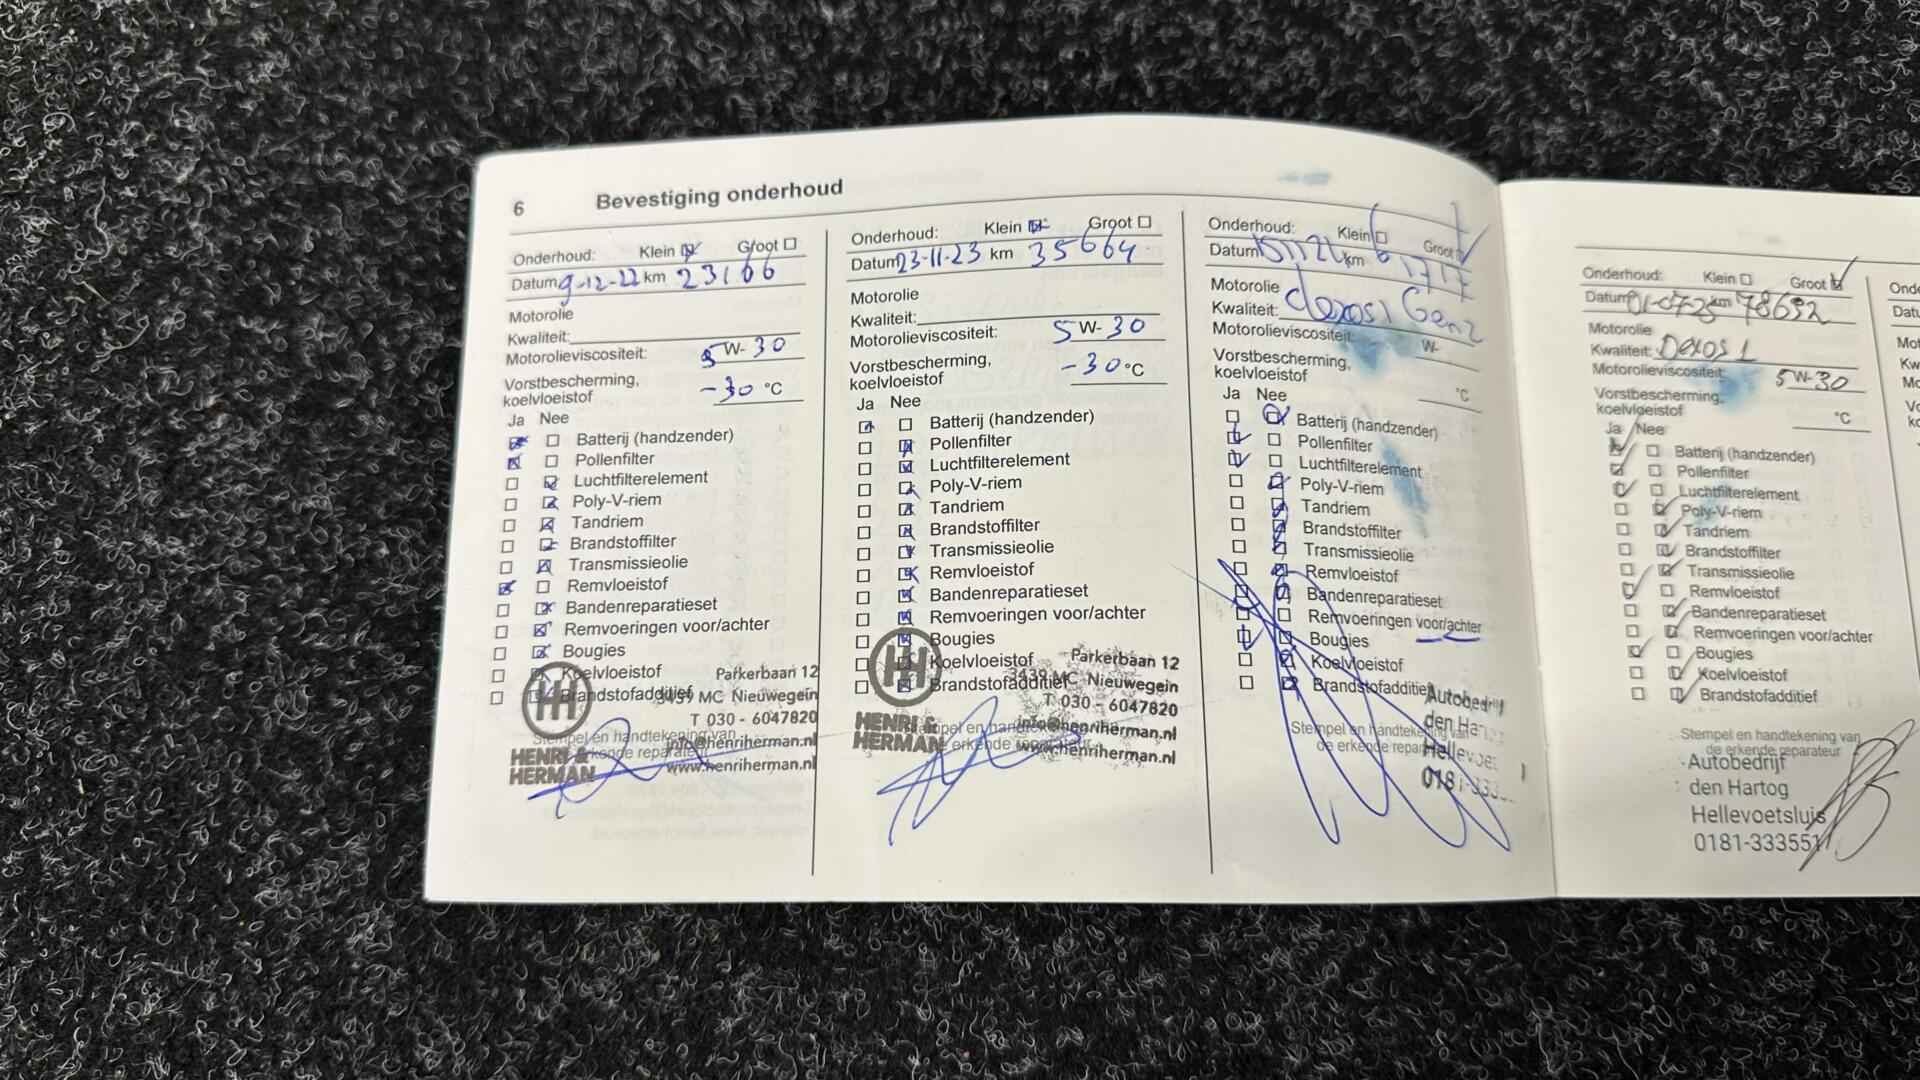 6 Bevestiging onderhoud
Onderhoud: Klein Groot
Datum 9-12-22 km 23106
Motorolie
Kwaliteit:
Motorolieviscositeit: 5W-30
Vorstbescherming,
koelvloeistof -30 °C
Ja Nee
Batterij (handzender)
Pollenfilter
Luchtfilterelement
Poly-V-riem
Tandriem
Brandstoffilter
Transmissieolie
Remvloeistof
Bandenreparatieset
Remvoeringen voor/achter
Bougies
Koelvloeistof
Brandstofadditief
Stempel en handtekening van
de erkende reparateur
HENRI &
HERMAN
Parkerbaan 12
3439 MC Nieuwegein
T 030 - 6047820
info@henriherman.nl
www.henriherman.nl
Onderhoud: Klein Groot
Datum 23-11-23 km 35664
Motorolie
Kwaliteit:
Motorolieviscositeit: 5W-30
Vorstbescherming,
koelvloeistof -30 °C
Ja Nee
Batterij (handzender)
Pollenfilter
Luchtfilterelement
Poly-V-riem
Tandriem
Brandstoffilter
Transmissieolie
Remvloeistof
Bandenreparatieset
Remvoeringen voor/achter
Bougies
Koelvloeistof
Brandstofadditief
Stempel en handtekening van
de erkende reparateur
HENRI &
HERMAN
Parkerbaan 12
3439 MC Nieuwegein
T 030 - 6047820
info@henriherman.nl
www.henriherman.nl
Onderhoud: Klein Groot
Datum km 61717
Motorolie
Kwaliteit: dexos1 Gen2
Motorolieviscositeit: W-
Vorstbescherming,
koelvloeistof °C
Ja Nee
Batterij (handzender)
Pollenfilter
Luchtfilterelement
Poly-V-riem
Tandriem
Brandstoffilter
Transmissieolie
Remvloeistof
Bandenreparatieset
Remvoeringen voor/achter
Bougies
Koelvloeistof
Brandstofadditief
Stempel en handtekening van
de erkende
Autobedrijf
den
0181-333
Onderhoud: Klein Groot
Datum km 78692
Motorolie
Kwaliteit: Dexos 1
Motorolieviscositeit: 5W-30
Vorstbescherming,
koelvloeistof °C
Ja Nee
Batterij (handzender)
Pollenfilter
Luchtfilterelement
Poly-V-riem
Tandriem
Brandstoffilter
Transmissieolie
Remvloeistof
Bandenreparatieset
Remvoeringen voor/achter
Bougies
Koelvloeistof
Brandstofadditief
Stempel en handtekening van
de erkende reparateur
Autobedrijf
den Hartog
Hellevoetsluis
0181-333551